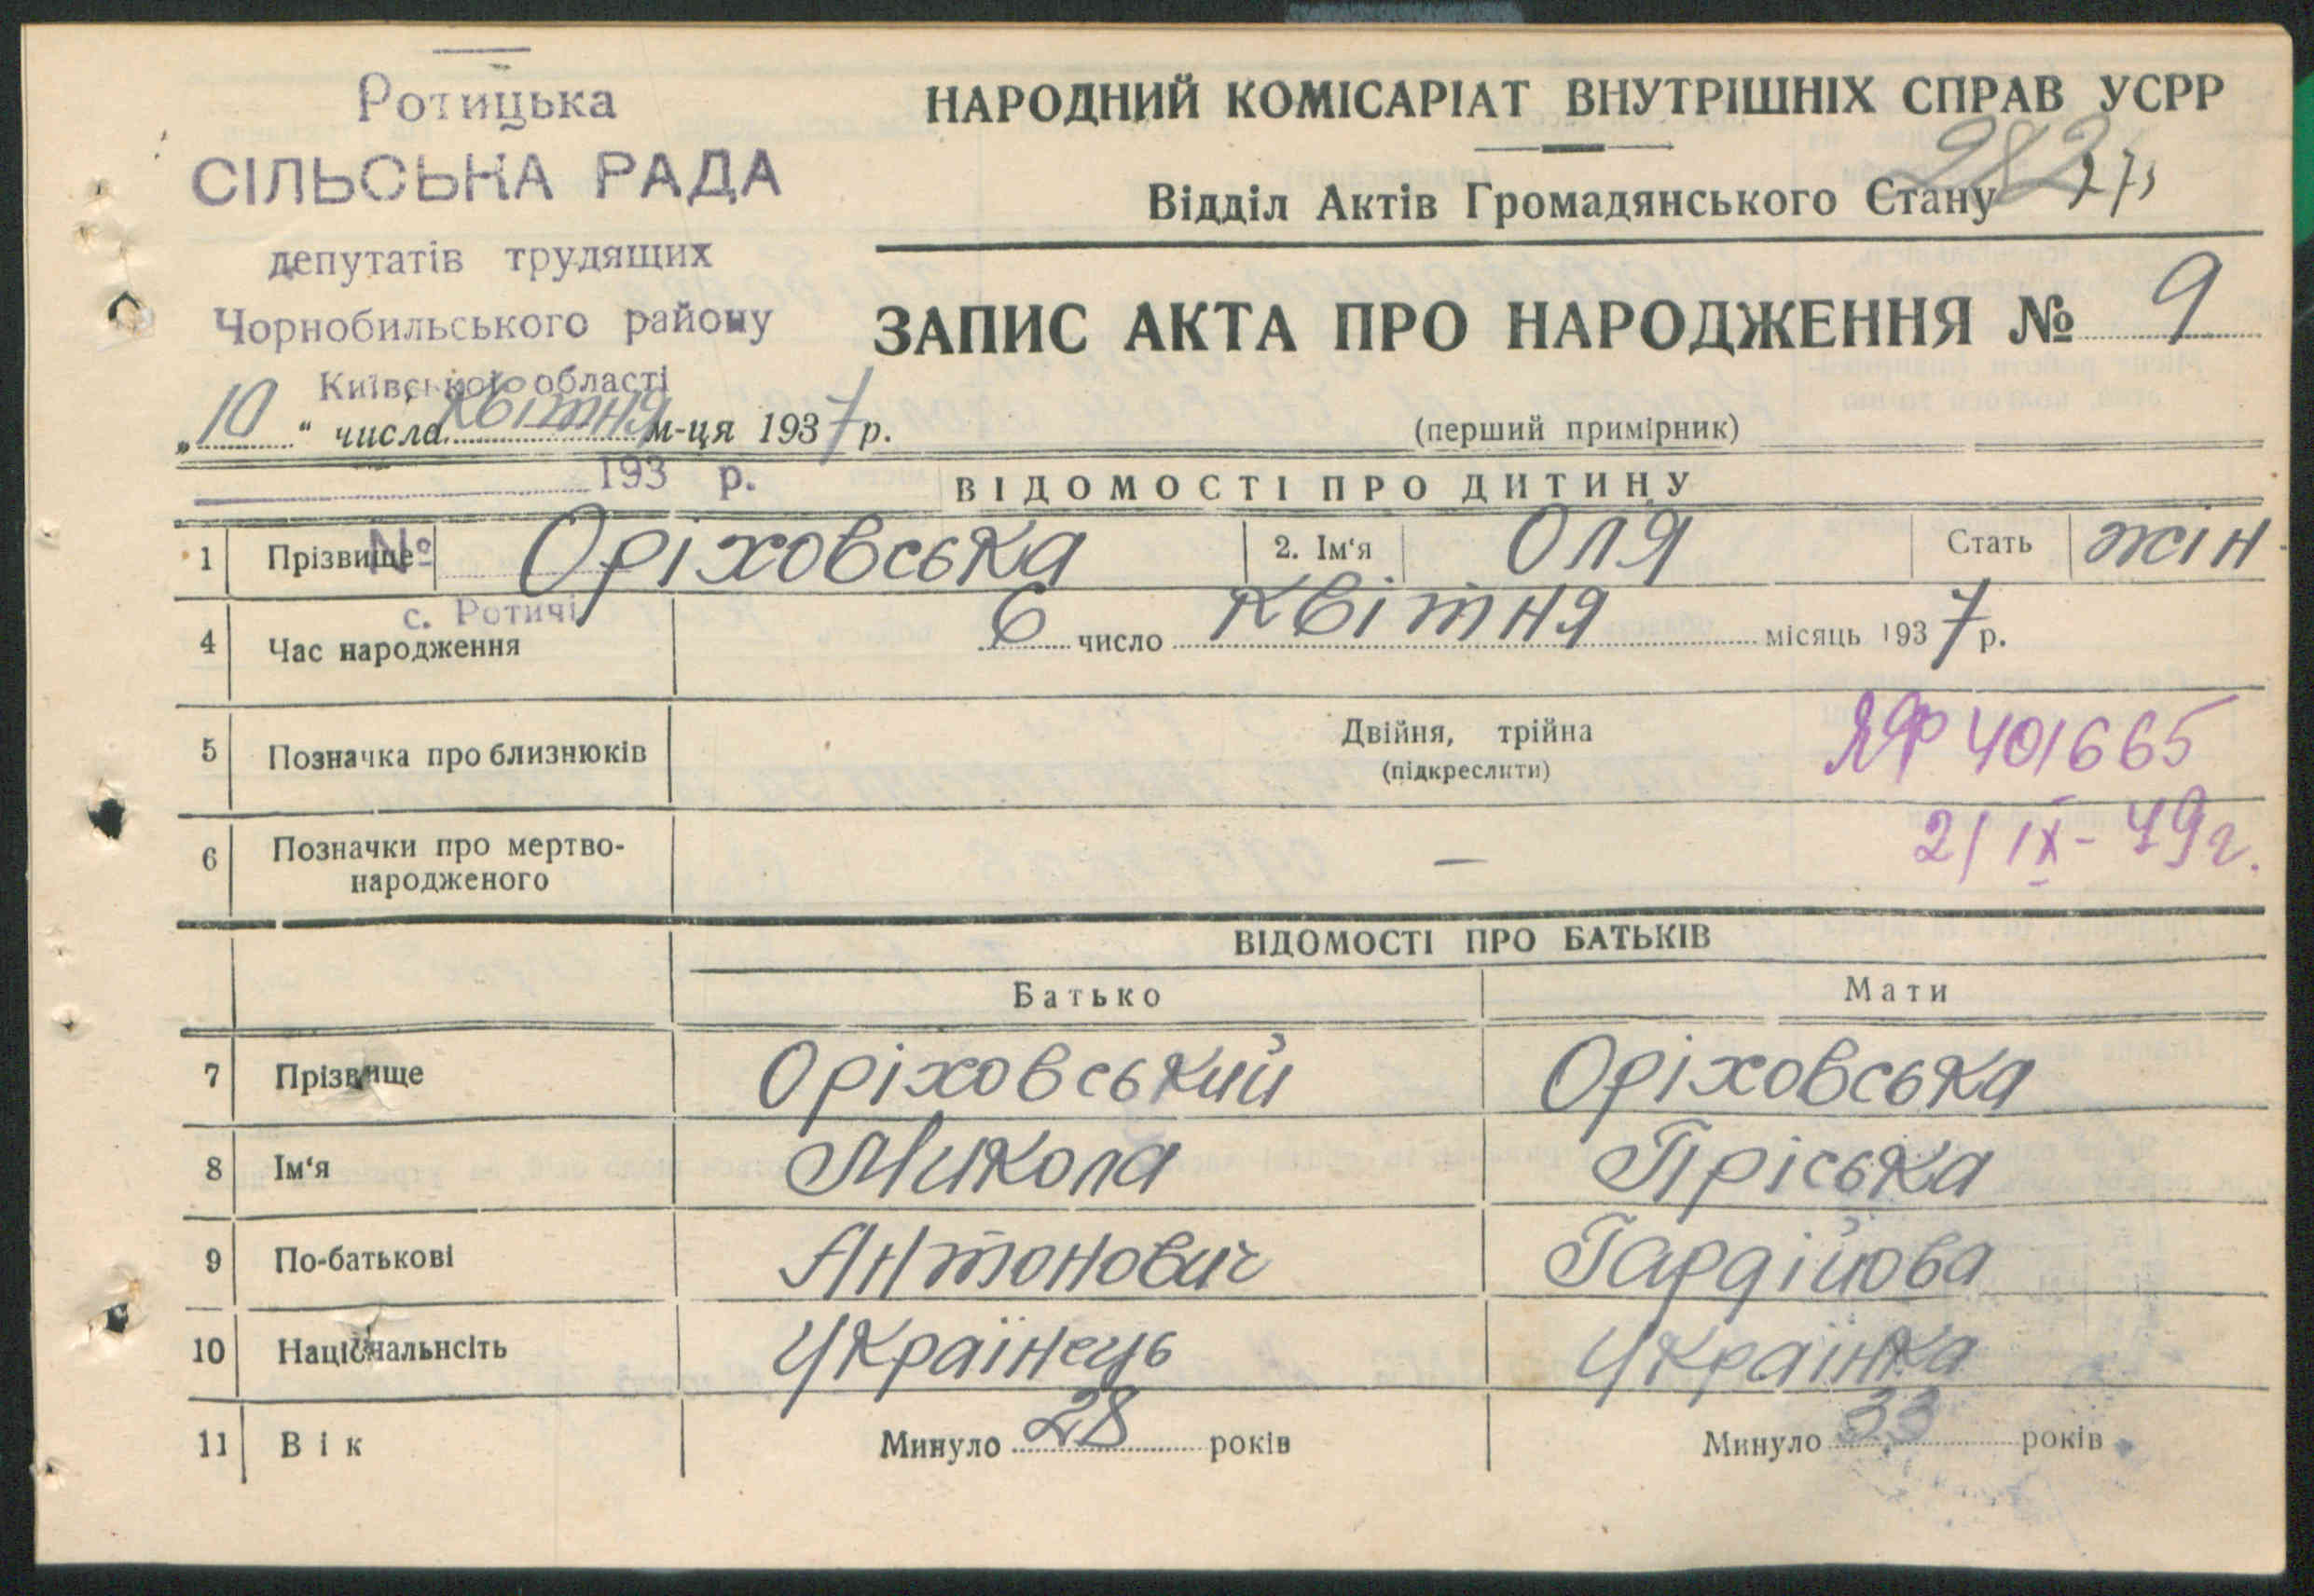 Ротицька
СІЛЬСЬКА РАДА
депутатів трудящих
Чорнобильського району
Київської області
193 р.
№
с. Ротичі
НАРОДНИЙ КОМІСАРІАТ ВНУТРІШНІХ СПРАВ УСРР
Відділ Актів Громадянського Стану
ЗАПИС АКТА ПРО НАРОДЖЕННЯ № 9
„10“ числа квітня м-ця 1937 р.
(перший примірник)
ВІДОМОСТІ ПРО ДИТИНУ
1 Прізвище Оріховська 2. Ім'я Оля Стать жін
4 Час народження 6 число квітня місяць 1937 р.
5 Позначка про близнюків Двійня, трійна
(підкреслити)
ЯФ 401665
6 Позначки про мертво-
народженого —
21 IX - 49 г.
ВІДОМОСТІ ПРО БАТЬКІВ
Батько Мати
7 Прізвище Оріховський Оріховська
8 Ім'я Микола Пріська
9 По-батькові Антонович Гардійова
10 Націочальнсіть Українець Українка
11 Вік Минуло 28 років Минуло 33 років